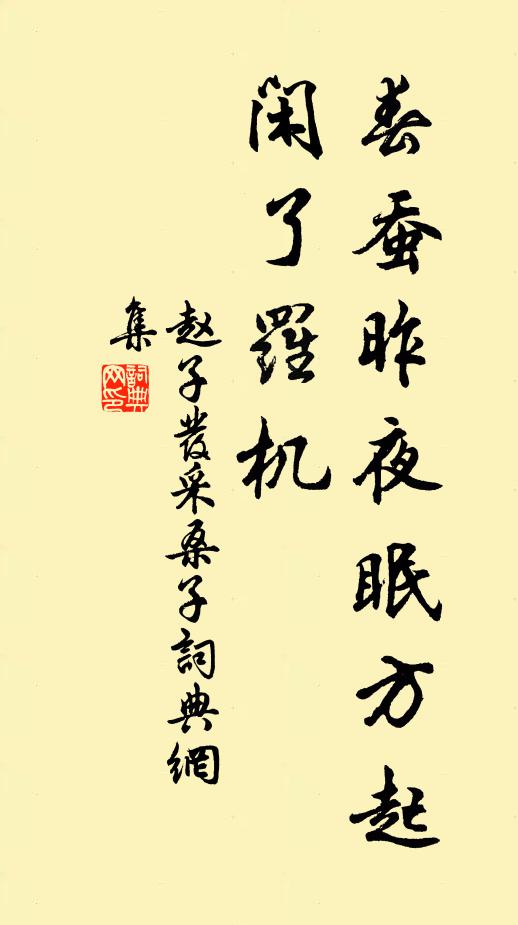 春蚕昨夜眠方起
闲了羅机
赵子發采桑子詞典網
集
詞典
网印